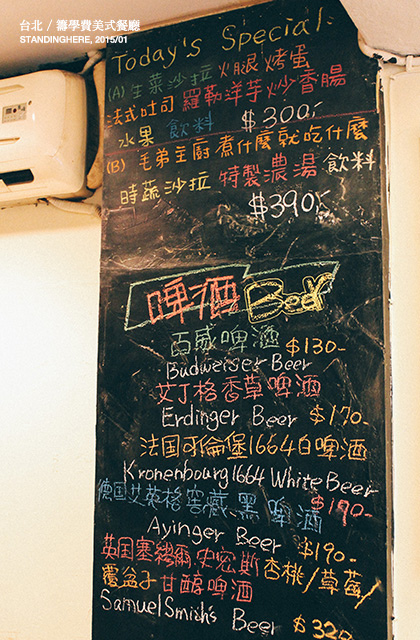 台北 / 籌學費美式餐廳
STANDINGHERE, 2015/01
Today's Special:
(A) 生菜沙拉 火腿烤蛋
法式吐司 羅勒洋芋炒香腸
水果 飲料 $300.-
(B) 毛弟主廚煮什麼就吃什麼
時蔬沙拉 特製濃湯 飲料
$390.-
啤酒 Beer
百威啤酒 $130-
Budweiser Beer
艾丁格香草啤酒
Erdinger Beer $170-
法国可倫堡1664白啤酒
Kronenbourg 1664 White Beer
$190-
德国艾英格窖藏.黑啤酒
Ayinger Beer $190-
英国塞繆爾.史密斯杏桃/草莓/
覆盆子甘醇啤酒
Samuel Smith's Beer